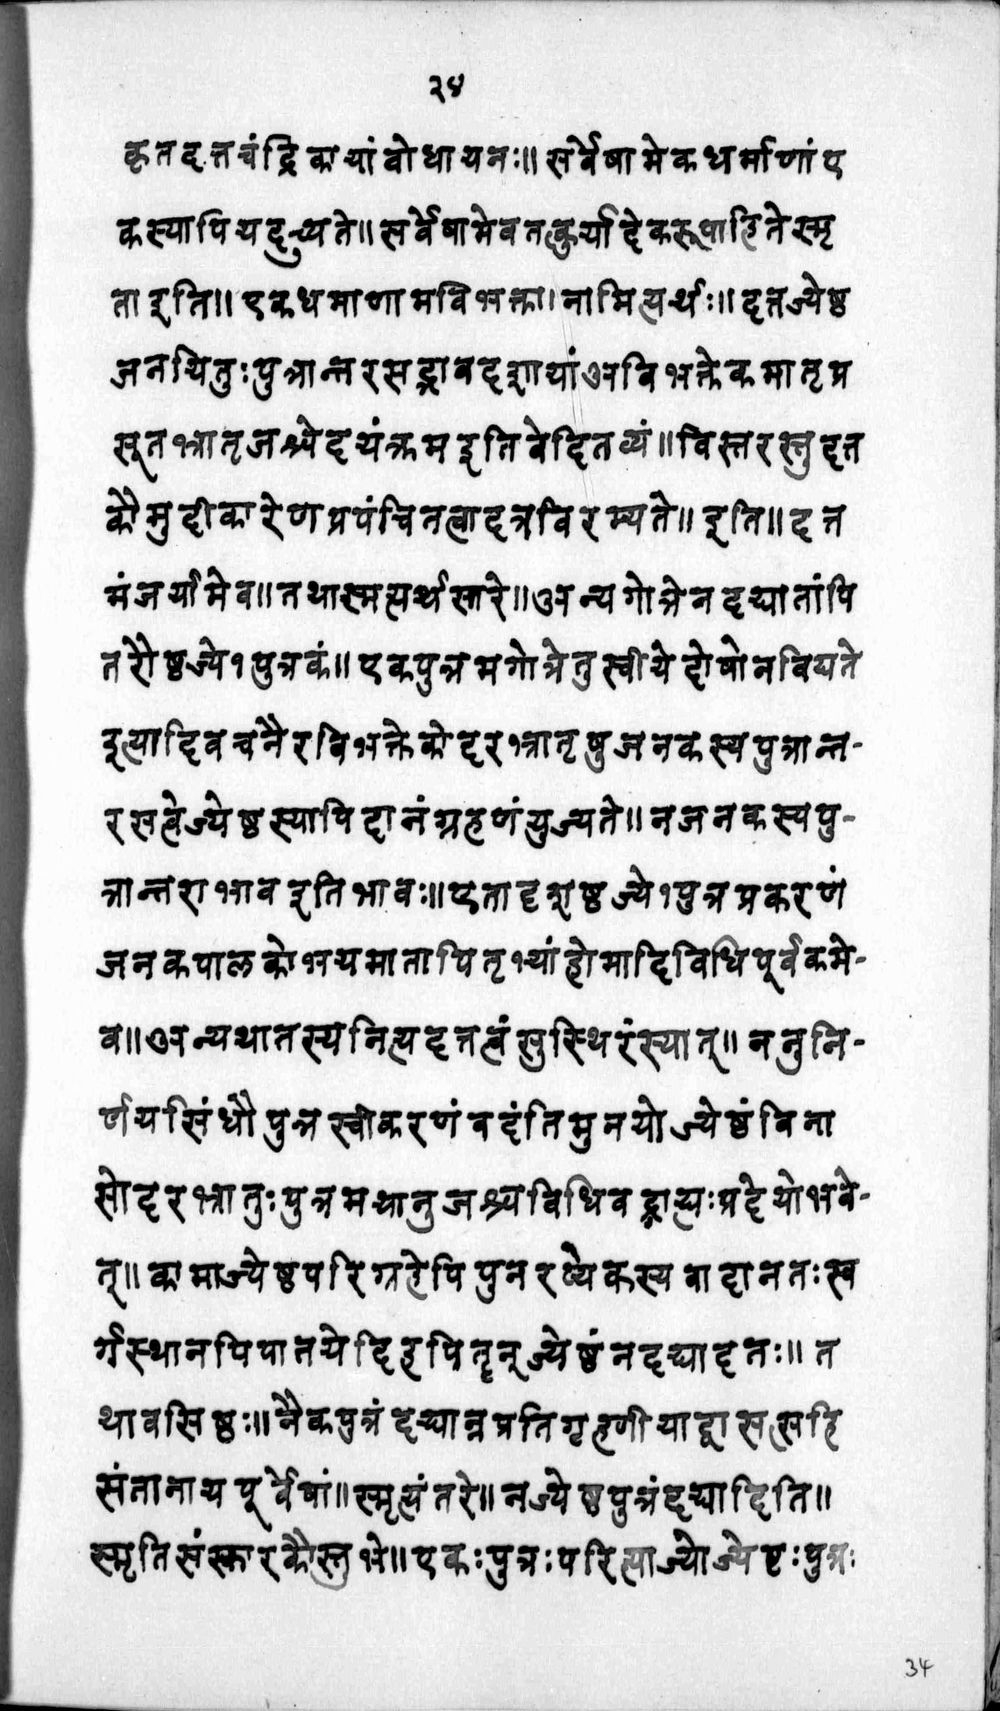 २४
कृतदत्तचंद्रिकायांबोधायनः॥सर्वेषामेकधर्माणांए
कस्यापियदुच्यते॥सर्वेषामेवतत्कुर्यादेकरूपाहितेस्मृ
ताइति॥एकधमाणामविभक्ता।नामित्यर्थः॥दत्तज्येष्ठ
जनयितुःपुत्रान्तरसद्भावदशायांअविभक्तेकमातृप्र
सूतभ्रातृजश्चेदयंक्रमइतिवेदितव्यं॥विस्तरस्तुदत्त
कौमुदीकारेणप्रपंचितत्वादत्रविरम्यते॥इति॥दत्त
मंजर्यामेव॥तथास्मृत्यर्थसारे॥अन्यगोत्रेनदद्यातांपि
तरौष्ठज्ये१पुत्रकं॥एकपुत्रमगोत्रेतुस्वीयेदोषोनविद्यते
इत्यादिवचनैरविभक्तेकोदरभ्रातृषुजनकस्यपुत्रान्त-
रसत्वेज्येष्ठस्यापिदानंग्रहणंयुज्यते॥नजनकस्यपु-
त्रान्तराभावइतिभावः॥एतादृशष्ठज्ये१पुत्रप्रकरणं
जनकपालकोभयमातापितृभ्यांहोमादिविधिपूर्वकमे-
व॥अन्यथातस्यनित्यदत्तत्वंसुस्थिरंस्यात्॥ननुनि-
र्णयसिंधौपुत्रस्वीकरणंवदंतिमुनयोज्येष्ठंविना
सोदरभ्रातुःपुत्रमथानुजश्चविधिवद्ग्राह्यःप्रदेयोभवे-
त्॥कामाज्येष्ठपरिग्रहेपिपुनरप्येकस्यवादानतःस्व
र्गस्थानपिपातयेदिहपितॄन्ज्येष्ठंनदद्यादतः॥त
थावसिष्ठः॥नैकपुत्रंदद्यान्नप्रतिगृह्णीयाद्वाससहि
संतानायपूर्वेषां॥स्मृत्यंतरे॥नज्येष्ठपुत्रंदद्यादिति॥
स्मृतिसंस्कारकौस्तुभे॥एकःपुत्रःपरित्याज्योज्येष्टःपुत्रः
34